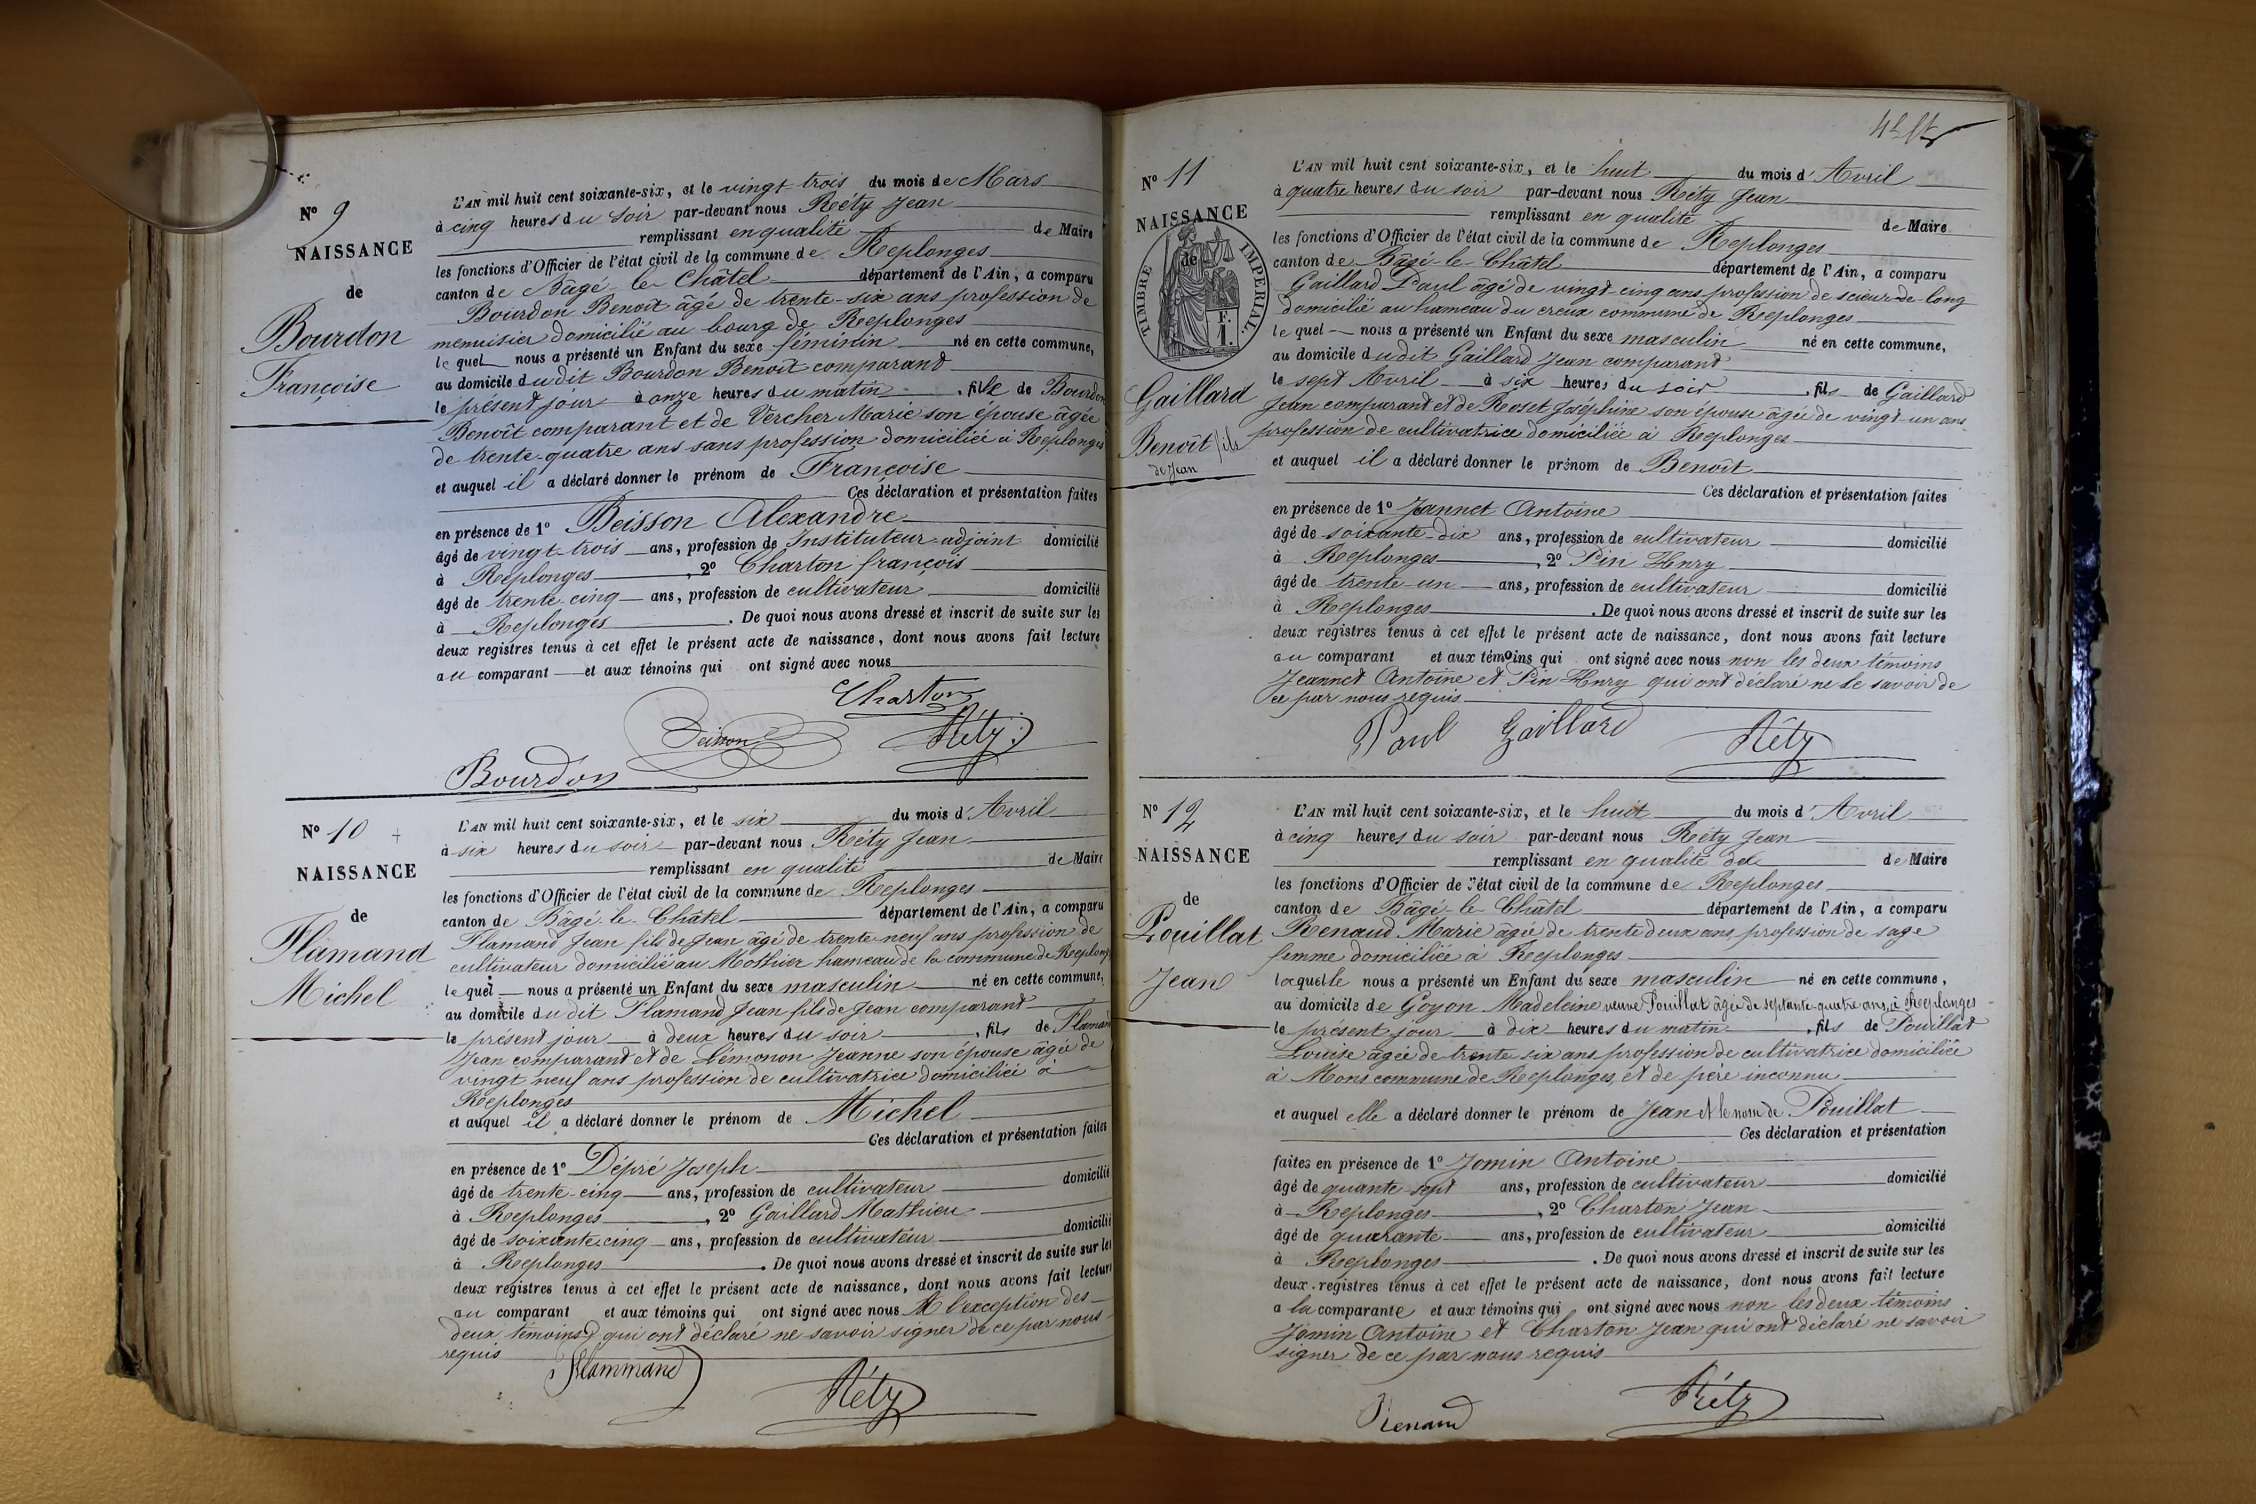 Nº 9
NAISSANCE
de
Bourdon
Françoise
L'AN mil huit cent soixante-six, et le vingt trois du mois de Mars
à cinq heures du soir par-devant nous Réty Jean
remplissant en qualité de Maire
les fonctions d'Officier de l'état civil de la commune de Replonges
canton de Bâgé-le-Châtel département de l'Ain, a comparu
Bourdon Benoît âgé de trente-six ans profession de
menuisier domicilié au bourg de Replonges
le quel nous a présenté un Enfant du sexe féminin né en cette commune,
au domicile dudit Bourdon Benoît comparant
le présent jour à onze heures du matin, fille de Bourdon
Benoît comparant et de Vercher Marie son épouse âgée
de trente-quatre ans sans profession domiciliée à Replonges
et auquel il a déclaré donner le prénom de Françoise
Ces déclaration et présentation faites
en présence de 1º Beisson Alexandre
âgé de vingt trois ans, profession de Instituteur-adjoint domicilié
à Replonges, 2º Charton françois
âgé de trente-cinq ans, profession de cultivateur domicilié
à Replonges. De quoi nous avons dressé et inscrit de suite sur les
deux registres tenus à cet effet le présent acte de naissance, dont nous avons fait lecture
au comparant et aux témoins qui ont signé avec nous
Charton
Beisson Réty
Bourdon
Nº 10
NAISSANCE
de
Flamand
Michel
L'AN mil huit cent soixante-six, et le six du mois d'Avril
à six heures du soir par-devant nous Réty Jean
remplissant en qualité de Maire
les fonctions d'Officier de l'état civil de la commune de Replonges
canton de Bâgé-le-Châtel département de l'Ain, a comparu
Flamand Jean fils de Jean âgé de trente-neuf ans profession de
cultivateur domicilié au Mothier hameau de la commune de Replonges
le quel nous a présenté un Enfant du sexe masculin né en cette commune,
au domicile du dit Flamand Jean fils de Jean comparant
le présent jour à deux heures du soir, fils de Flamand
Jean comparant et de Lémonon Jeanne son épouse âgée de
vingt neuf ans profession de cultivatrice domiciliée à
Replonges
et auquel il a déclaré donner le prénom de Michel
Ces déclaration et présentation faites
en présence de 1º Dépré Joseph
âgé de trente-cinq ans, profession de cultivateur domicilié
à Replonges, 2º Gaillard Mathieu
âgé de soixante cinq ans, profession de cultivateur domicilié
à Replonges. De quoi nous avons dressé et inscrit de suite sur les
deux registres tenus à cet effet le présent acte de naissance, dont nous avons fait lecture
au comparant et aux témoins qui ont signé avec nous A l'exception des
deux témoins qui ont déclaré ne savoir signer de ce par nous
requis
Flammand Réty
Nº 11
NAISSANCE
de
TIMBRE IMPERIAL
F.
1.
Gaillard
Benoît fils
de Jean
L'AN mil huit cent soixante-six, et le huit du mois d'Avril
à quatre heures du soir par-devant nous Réty Jean
remplissant en qualité de Maire
les fonctions d'Officier de l'état civil de la commune de Replonges
canton de Bâgé-le-Châtel département de l'Ain, a comparu
Gaillard Paul âgé de vingt-cinq ans profession de scieur-de-long
domicilié au hameau du creux commune de Replonges
le quel nous a présenté un Enfant du sexe masculin né en cette commune,
au domicile dudit Gaillard Jean comparant
le sept Avril à six heures du soir, fils de Gaillard
Jean comparant et de Roset Joséphine son épouse âgée de vingt-un ans
profession de cultivatrice domiciliée à Replonges
et auquel il a déclaré donner le prénom de Benoît
Ces déclaration et présentation faites
en présence de 1º Jeannet Antoine
âgé de soixante-dix ans, profession de cultivateur domicilié
à Replonges, 2º Pin Henry
âgé de trente-un ans, profession de cultivateur domicilié
à Replonges. De quoi nous avons dressé et inscrit de suite sur les
deux registres tenus à cet effet le présent acte de naissance, dont nous avons fait lecture
au comparant et aux témoins qui ont signé avec nous non les deux témoins
Jeannet Antoine et Pin Henry qui ont déclaré ne le savoir de
ce par nous requis
Paul Gaillard Réty
Nº 12
NAISSANCE
de
Pouillat
Jean
L'AN mil huit cent soixante-six, et le huit du mois d'Avril
à cinq heures du soir par-devant nous Réty Jean
remplissant en qualité de de Maire
les fonctions d'Officier de l'état civil de la commune de Replonges
canton de Bâgé-le-Châtel département de l'Ain, a comparu
Renaud Marie âgée de trente deux ans profession de sage
femme domiciliée à Replonges
laquelle nous a présenté un Enfant du sexe masculin né en cette commune,
au domicile de Goyon Madeleine veuve Pouillat âgée de septante-quatre ans, à Replonges
le présent jour à dix heures du matin, fils de Pouillat
Louise âgée de trente six ans profession de cultivatrice domiciliée
à Mons commune de Replonges et de père inconnu
et auquel elle a déclaré donner le prénom de Jean et le nom de Pouillat
Ces déclaration et présentation
faites en présence de 1º Jomin Antoine
âgé de quante-sept ans, profession de cultivateur domicilié
à Replonges, 2º Charton Jean
âgé de quarante ans, profession de cultivateur domicilié
à Replonges. De quoi nous avons dressé et inscrit de suite sur les
deux registres tenus à cet effet le présent acte de naissance, dont nous avons fait lecture
a la comparante et aux témoins qui ont signé avec nous non les deux témoins
Jomin Antoine et Charton Jean qui ont déclaré ne savoir
signer de ce par nous requis
Renaud Réty